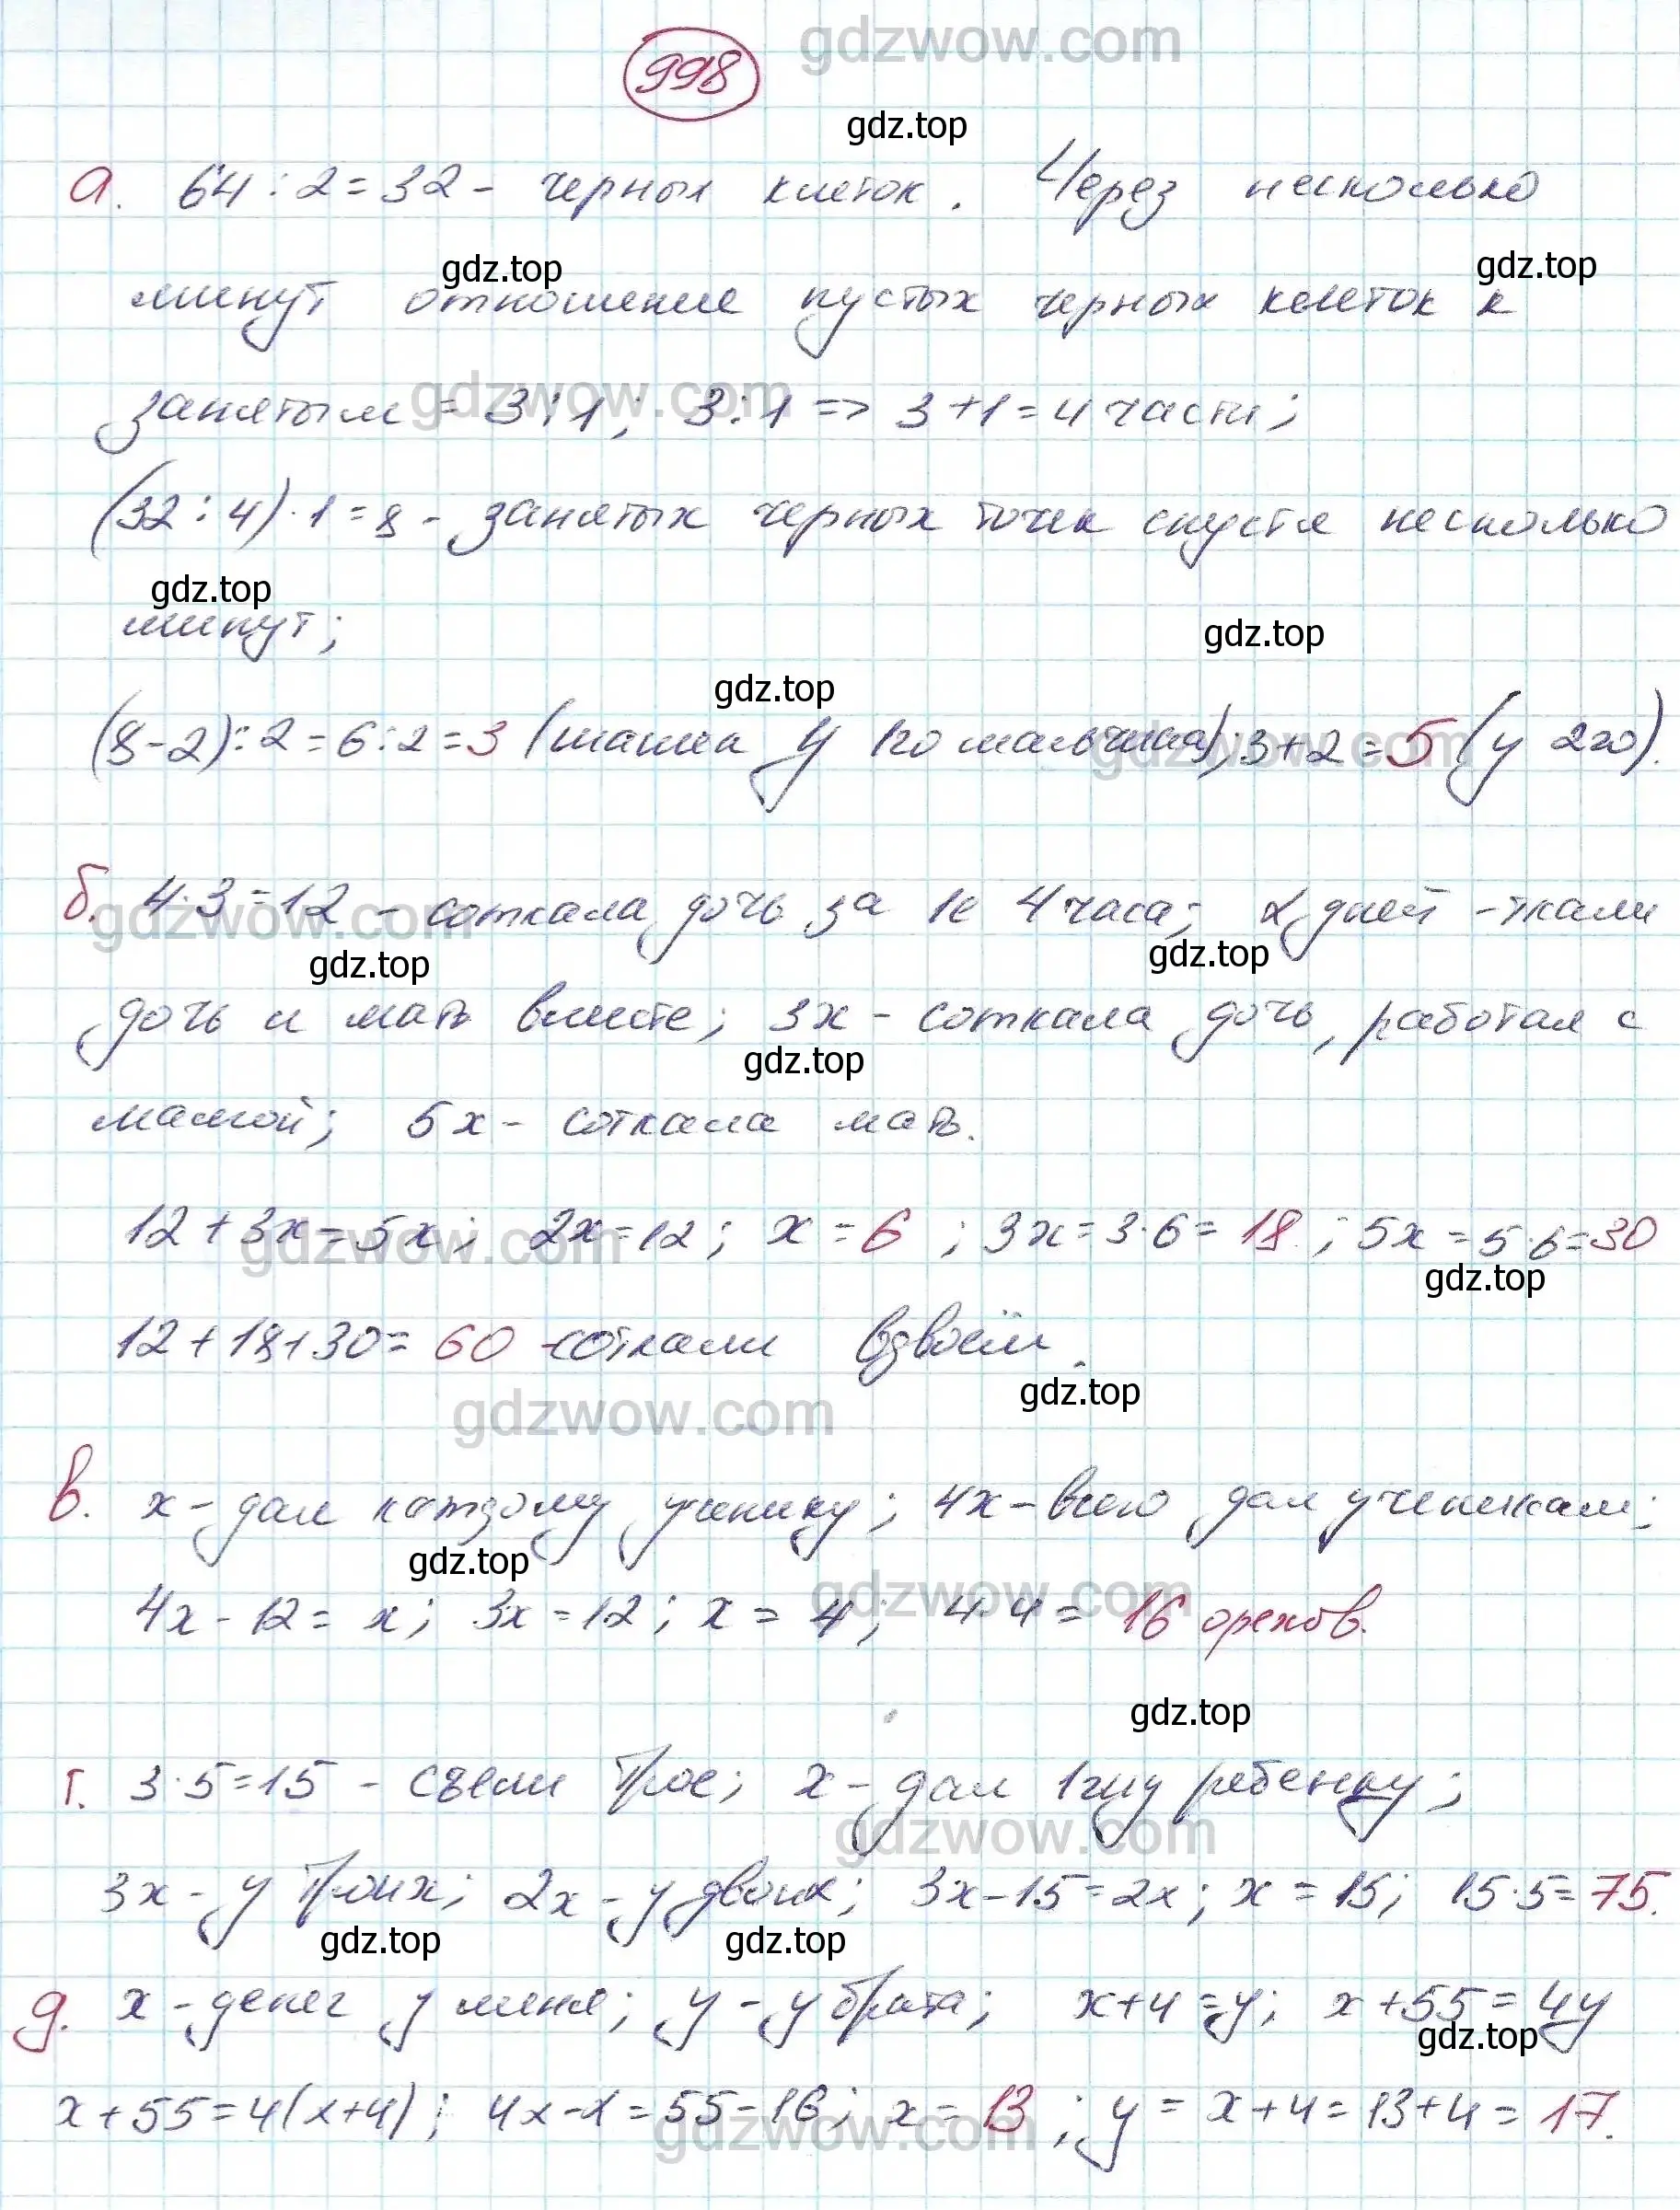 gdzwow.com
998
gdz.top
а. 64 : 2 = 32 - черных клеток. Через несколько
gdz.top
gdz.top
минут отношение пустых черных клеток к
gdzwow.com
занятым = 3 : 1; 3 : 1 => 3 + 1 = 4 части;
(32 : 4) · 1 = 8 - занятых черных точек спустя несколько
gdz.top
минут;
gdz.top
gdz.top
(8 - 2) : 2 = 6 : 2 = 3 (шашка у 1го мальчика); 3 + 2 = 5 (у 2го).
gdzwow.com
б. 4 · 3 = 12 - соткала дочь за 1е 4 часа; x дней - ткали
gdzwow.com
gdz.top
gdz.top
дочь и мать вместе; 3x - соткала дочь, работая с
gdz.top
мамой; 5x - соткала мать.
12 + 3x = 5x; 2x = 12; x = 6; 3x = 3 · 6 = 18; 5x = 5 · 6 = 30
gdzwow.com
gdz.top
12 + 18 + 30 = 60 - соткали вдвоём.
gdz.top
gdzwow.com
в. x - дал каждому ученику; 4x - всего дал ученикам;
gdz.top
gdzwow.com
4x - 12 = x; 3x = 12; x = 4; 4 · 4 = 16 орехов.
gdz.top
г. 3 · 5 = 15 - съели трое; x - дал 1му ребенку;
gdzwow.com
3x - у троих; 2x - у двоих; 3x - 15 = 2x; x = 15; 15 · 5 = 75.
gdz.top
gdz.top
д. x - денег у меня; y - у брата; x + 4 = y; x + 55 = 4y
gdz.top
x + 55 = 4(x + 4); 4x - x = 55 - 16; x = 13; y = x + 4 = 13 + 4 = 17.
gdzwow.com